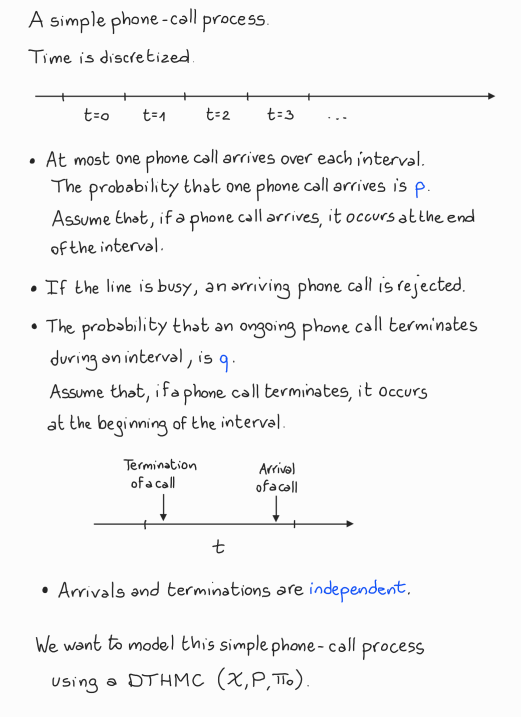 A simple phone-call process.
Time is discretized.
t=0 t=1 t=2 t=3 ...
• At most one phone call arrives over each interval.
The probability that one phone call arrives is p.
Assume that, if a phone call arrives, it occurs at the end
of the interval.
• If the line is busy, an arriving phone call is rejected.
• The probability that an ongoing phone call terminates
during an interval, is q.
Assume that, if a phone call terminates, it occurs
at the beginning of the interval.
Termination Arrival
of a call of a call
t
• Arrivals and terminations are independent.
We want to model this simple phone-call process
using a DTHMC (X, P, π₀).